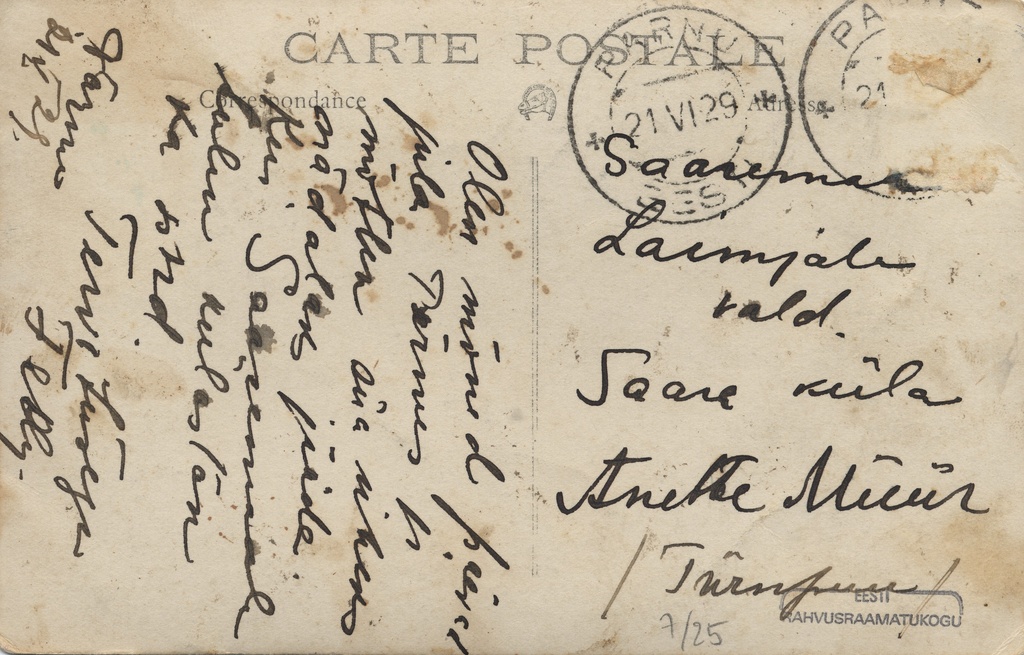 CARTE POSTALE
Correspondance
Adresse
PÄRNU
21 VI 29
EESTI
PÄ
21
Pärnu
Olen mõned päiva
juba Pärnus ja
mõtlen siia ühens
nädalans jääda.
Kui Saaremaale
tulen külastan
ka sind.
Tervitusega
Saaremaa
Laimjala
vald.
Saare küla
Anette Müür
/Türnpuu/
7/25
EESTI
RAHVUSRAAMATUKOGU